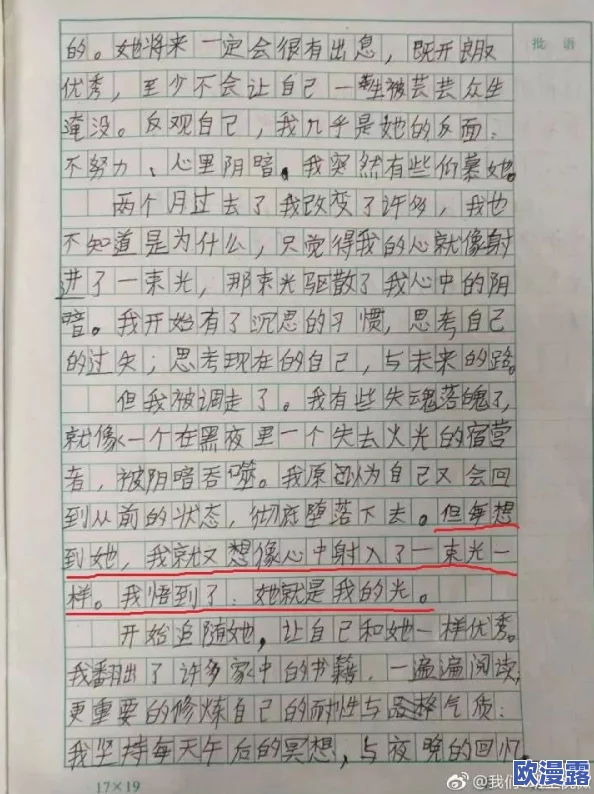 批语
的。她将来一定会很有出息，既开良取
优秀，至少不会让自己一生被芸芸众生
淹没。反观自己，我几乎是她的反面：
不努力、心里阴暗。我突然有些仰慕她。
两个月过去了我改变了许多，我也
不知道是为什么，只觉得我的心就像射
进了一束光，那束光驱散了我心中的阴
暗。我开始有了沉思的习惯，思考自己
的过失；思考现在的自己，与未来的路。
但我被调走了。我有些失魂落魄了，
就像一个在黑夜里一个失去火光的宿营
者，被阴暗吞噬。我原还以为自己又会回
到从前的状态，彻底堕落下去。但每想
到她，我就又想像心中射入了一束光一
样。我悟到了：她就是我的光。
开始追随她，让自己和她一样优秀。
我翻出了许多家中的书籍，一遍遍阅读，
更重要的修炼自己的耐性与品格气质：
我坚持每天午后的冥想，与夜晚的回忆。
17×19
@我们
欧漫露